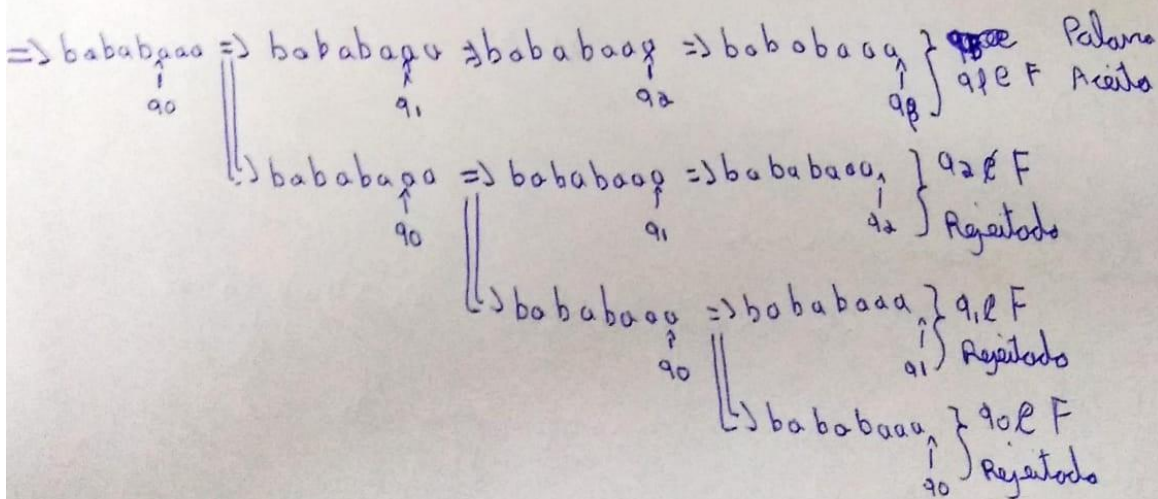 => bababaaa => bababaaa => bababaaa => bababaaa } Palavra
q0 q1 q2 qf qf ∈ F Aceita
=> bababaaa => bababaaa => bababaaa } q2 ∉ F
q0 q1 q2 Rejeitado
=> bababaaa => bababaaa } q1 ∉ F
q0 q1 Rejeitado
=> bababaaa } q0 ∉ F
q0 Rejeitado